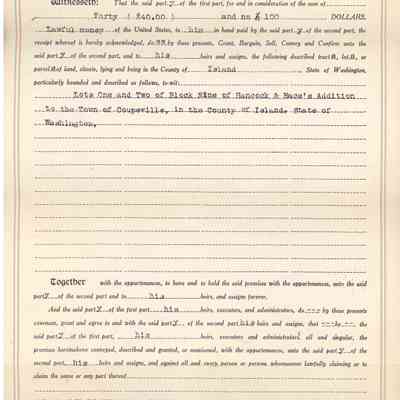 Witnesseth: That the said party of the first part, for and in consideration of the sum of
Forty ( $40.00 ) and no/100 DOLLARS,
Lawful money of the United States, to his in hand paid by the said party of the second part, the
receipt whereof is hereby acknowledged, does by these presents, Grant, Bargain, Sell, Convey and Confirm unto the
said party of the second part, and to his heirs and assigns, the following described tracts, lots, or
parcels of land, situate, lying and being in the County of Island, State of Washington,
particularly bounded and described as follows, to-wit:
Lots One and Two of Block Nine of Hancock & Race's Addition
to the Town of Coupeville, in the County of Island, State of
Washington,
Together with the appurtenances, to have and to hold the said premises with the appurtenances, unto the said
party of the second part and to his heirs, and assigns forever.
And the said party of the first part his heirs, executors, and administrators, do by these presents
covenant, grant and agree to and with the said party of the second part his heirs and assigns, that he the
said party of the first part, his heirs, executors and administrators all and singular, the
premises hereinabove conveyed, described and granted, or mentioned, with the appurtenances, unto the said party of the
second part, his heirs and assigns, and against all and every person or persons whomsoever lawfully claiming or to
claim the same or any part thereof